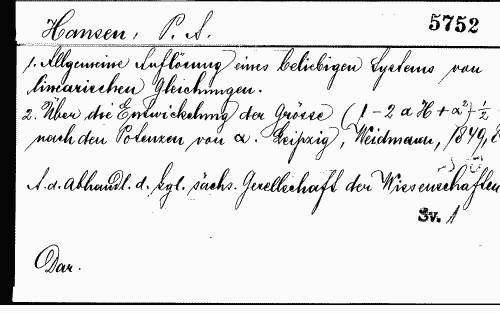 Hansen, P. A. 5752
1. Allgemeine Auflösung eines beliebigen Systems von
linearischen Gleichungen.
2. Über die Entwickelung der Grösse (1 - 2 α H + α²)½
nach den Potenzen von α. Leipzig, Weidmann, 1849, 8
A. d. Abhandl. d. kgl. sächs. Gesellschaft der Wissenschaften
Sv. A
Dar.